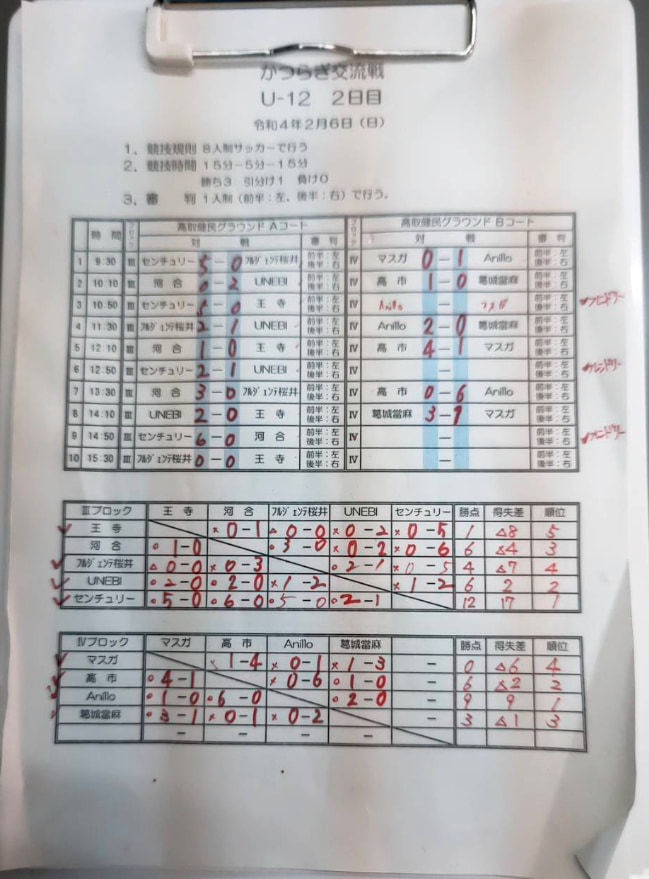 かつらぎ交流戦
U-12 2日目
令和4年2月6日(日)
1、競技規則 8人制サッカーで行う
2、競技時間 15分-5分-15分
勝ち3 引分け1 負け0
3、審 判 1人制(前半:左、後半:右)で行う。
時間 ブロック 高取健民グラウンド Aコート ブロック 高取健民グラウンド Bコート
対 戦 審判 対 戦 審判
1 9:30 Ⅲ センチュリー 5-0 フルジェンテ桜井 前半:左 後半:右 Ⅳ マスガ 0-1 Anillo 前半:左 後半:右
2 10:10 Ⅲ 河合 0-2 UNEBI 前半:左 後半:右 Ⅳ 高市 1-0 葛城當麻 前半:左 後半:右
3 10:50 Ⅲ センチュリー 5-0 王寺 前半:左 後半:右 Ⅳ Anillo マスガ 前半:左 後半:右
4 11:30 Ⅲ フルジェンテ桜井 2-1 UNEBI 前半:左 後半:右 Ⅳ Anillo 2-0 葛城當麻 前半:左 後半:右
5 12:10 Ⅲ 河合 1-0 王寺 前半:左 後半:右 Ⅳ 高市 4-1 マスガ 前半:左 後半:右
6 12:50 Ⅲ センチュリー 2-1 UNEBI 前半:左 後半:右 Ⅳ - 前半:左 後半:右
7 13:30 Ⅲ 河合 3-0 フルジェンテ桜井 前半:左 後半:右 Ⅳ 高市 0-6 Anillo 前半:左 後半:右
8 14:10 Ⅲ UNEBI 2-0 王寺 前半:左 後半:右 Ⅳ 葛城當麻 3-1 マスガ 前半:左 後半:右
9 14:50 Ⅲ センチュリー 6-0 河合 前半:左 後半:右 Ⅳ - 前半:左 後半:右
10 15:30 Ⅲ フルジェンテ桜井 0-0 王寺 前半:左 後半:右 Ⅳ - 前半:左 後半:右
Ⅲブロック 王寺 河合 フルジェンテ桜井 UNEBI センチュリー 勝点 得失差 順位
王寺 ×0-1 △0-0 ×0-2 ×0-5 1 △8 5
河合 ○1-0 ○3-0 ×0-2 ×0-6 6 △4 3
フルジェンテ桜井 △0-0 ×0-3 ○2-1 ×0-5 4 △7 4
UNEBI ○2-0 ○2-0 ×1-2 ×1-2 6 2 2
センチュリー ○5-0 ○6-0 ○5-0 ○2-1 12 17 1
Ⅳブロック マスガ 高市 Anillo 葛城當麻 勝点 得失差 順位
マスガ ×1-4 ×0-1 ×1-3 - 0 △6 4
高市 ○4-1 ×0-6 ○1-0 - 6 △2 2
Anillo ○1-0 ○6-0 ○2-0 - 9 9 1
葛城當麻 ○3-1 ×0-1 ×0-2 - 3 △1 3
- - - -